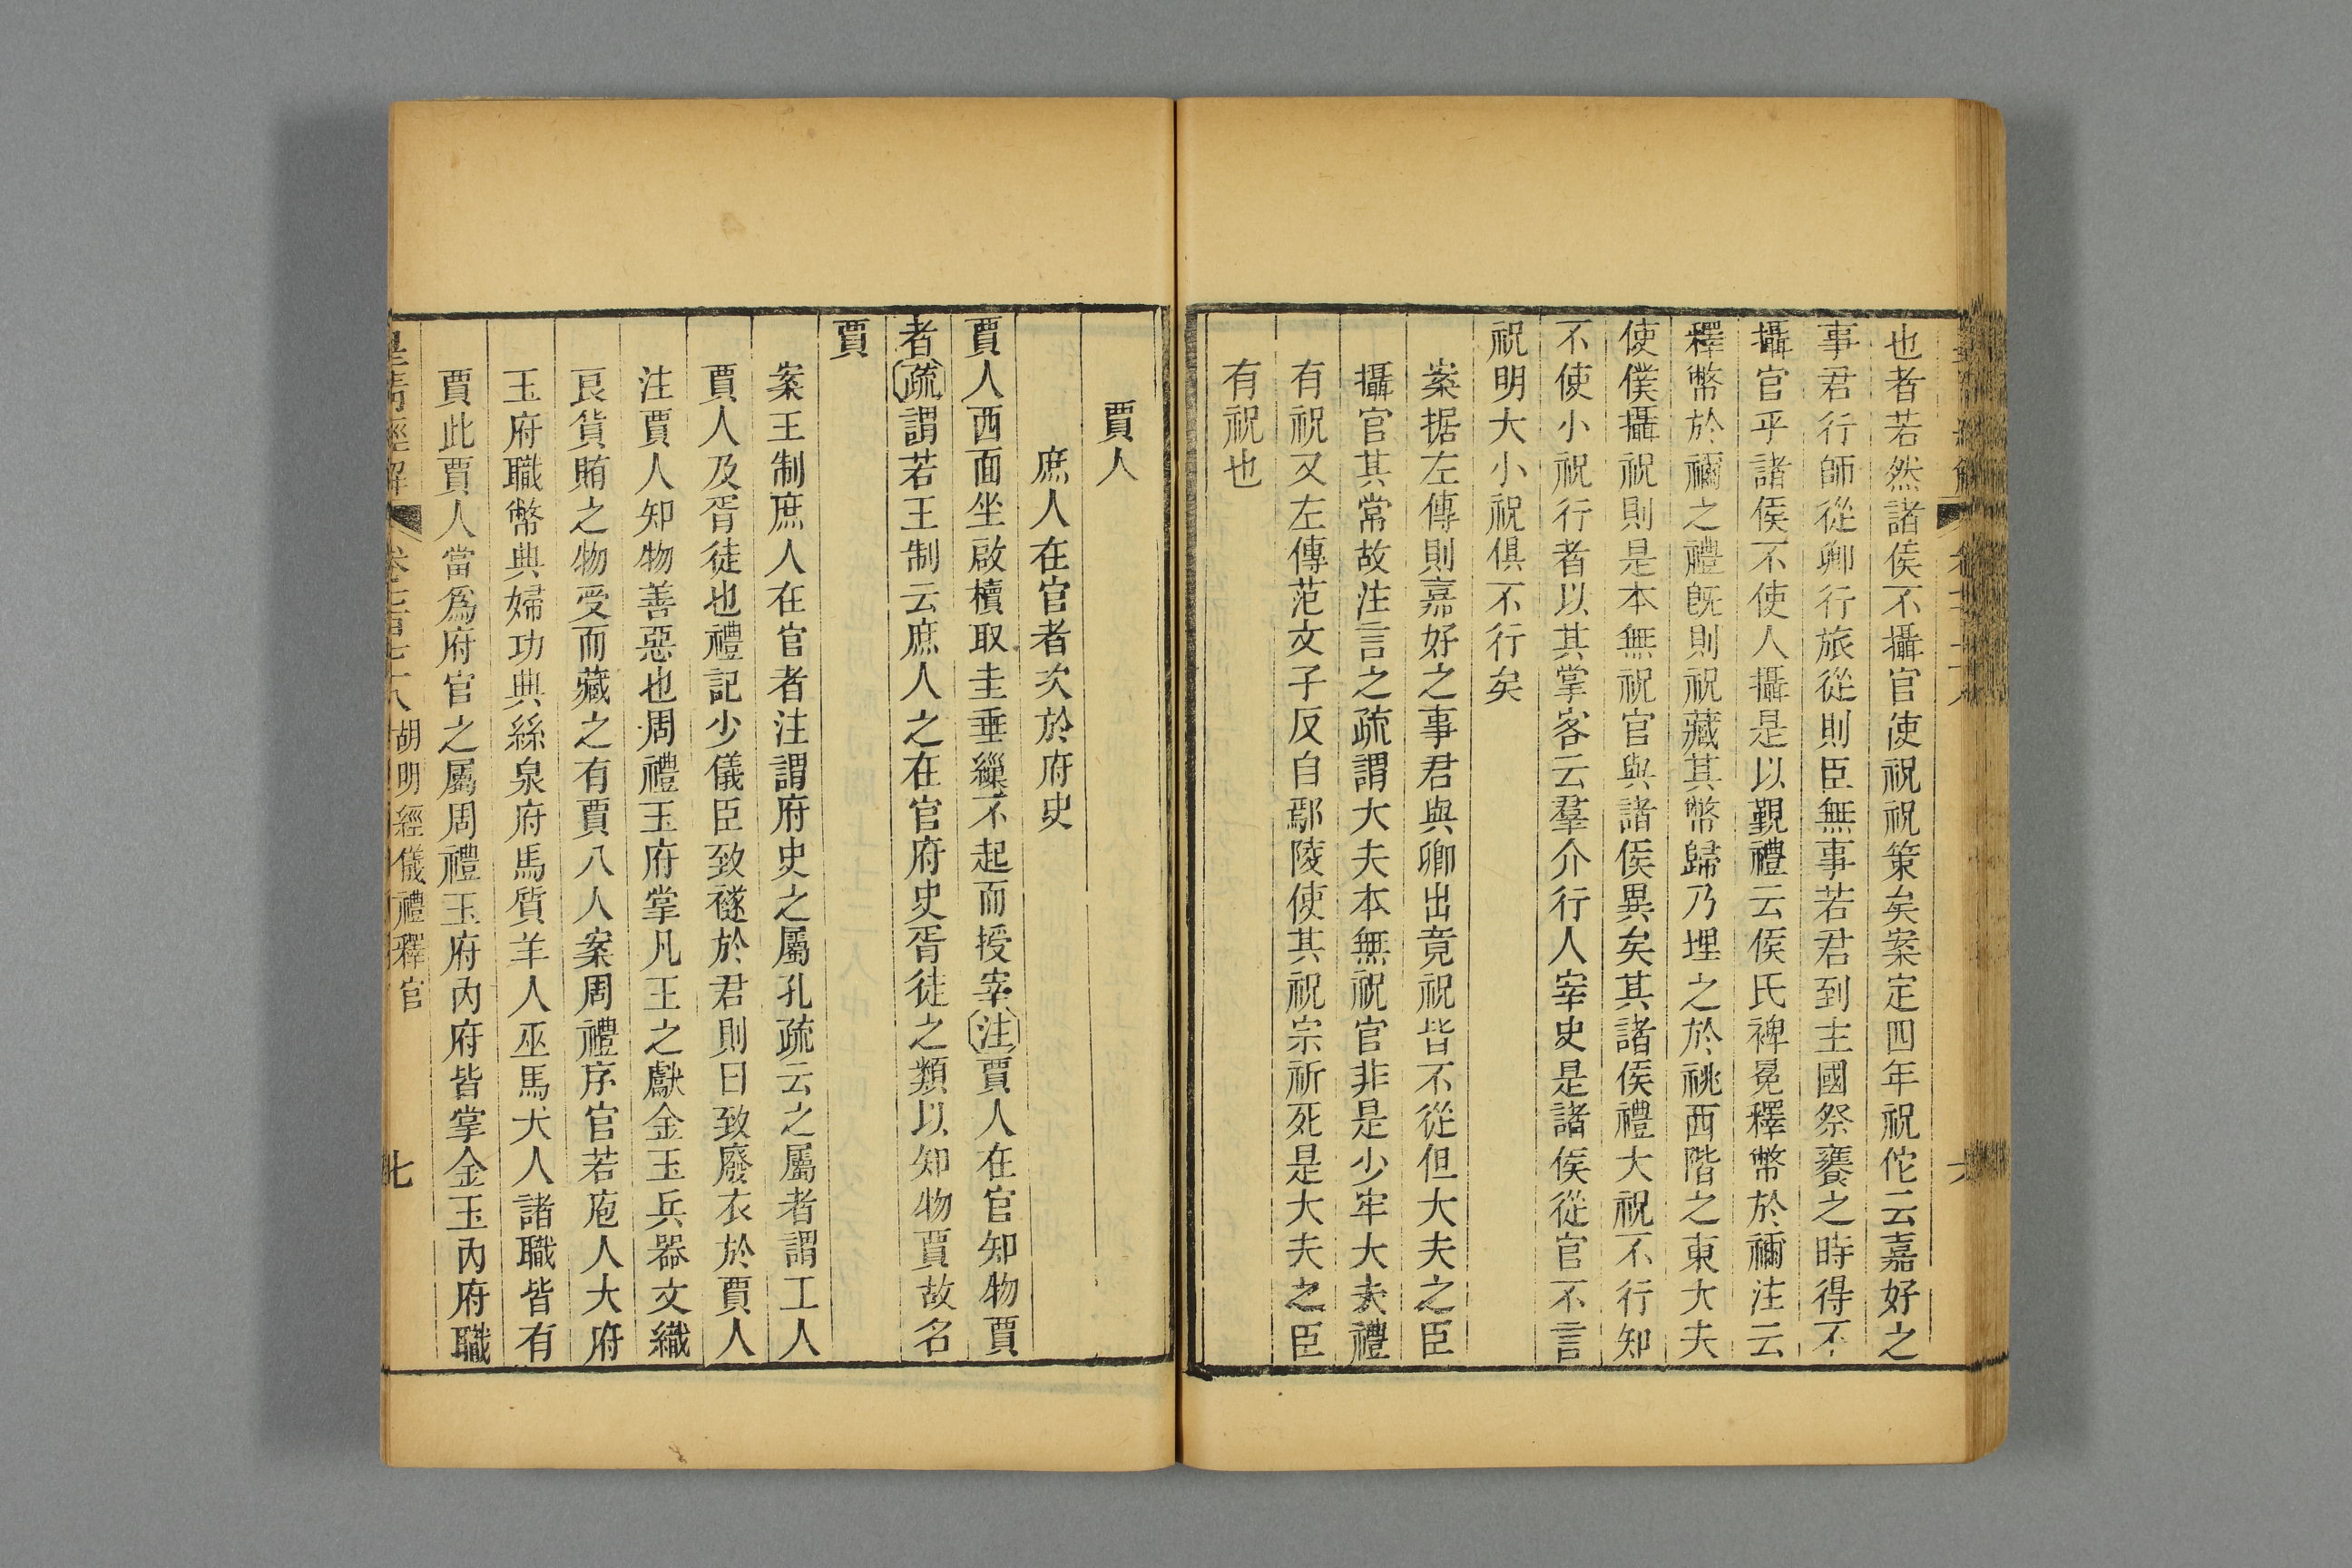 也者若然諸侯不攝官使祝祝策矣案定四年祝佗云嘉好之
事君行師從卿行旅從則臣無事若君到主國祭饔之時得不
攝官乎諸侯不使人攝是以覲禮云侯氏裨冕釋幣於禰注云
釋幣於禰之禮旣則祝藏其幣歸乃埋之於祧西階之東大夫
使僕攝祝則是本無祝官與諸侯異矣其諸侯禮大祝不行知
不使小祝行者以其掌客云羣介行人宰史是諸侯從官不言
祝明大小祝俱不行矣
案据左傳則嘉好之事君與卿出竟祝皆不從但大夫之臣
攝官其常故注言之疏謂大夫本無祝官非是少牢大夫禮
有祝又左傳范文子反自鄢陵使其祝宗祈死是大夫之臣
有祝也
賈人
庶人在官者次於府史
賈人西面坐啟櫝取圭垂繅不起而授宰注賈人在官知物賈
者疏謂若王制云庶人之在官府史胥徒之類以知物賈故名
賈
案王制庶人在官者注謂府史之屬孔疏云之屬者謂工人
賈人及胥徒也禮記少儀臣致襚於君則曰致廢衣於賈人
注賈人知物善惡也周禮玉府掌凡王之獻金玉兵器文織
良貨賄之物受而藏之有賈八人案周禮序官若庖人大府
玉府職幣典婦功典絲泉府馬質羊人巫馬犬人諸職皆有
賈此賈人當爲府官之屬周禮玉府內府皆掌金玉內府職
皇清經解 卷七百七十八 胡明經儀禮釋官 七